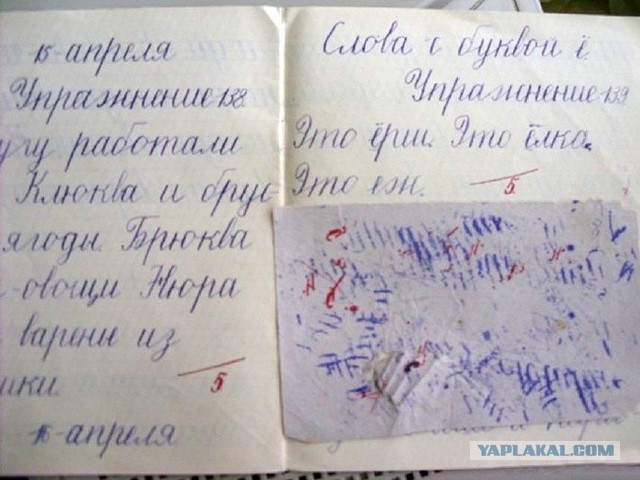 15 апреля
Упражнение 138.
работали
Клюква и брус-
ягоды. Брюква
-овощи Нюра
варены из
ики.
5
16 апреля
Слова с буквой ё.
Упражнение 139
Это ёрш. Это ёлка.
Это еж.
5
YAPLAKAL.COM